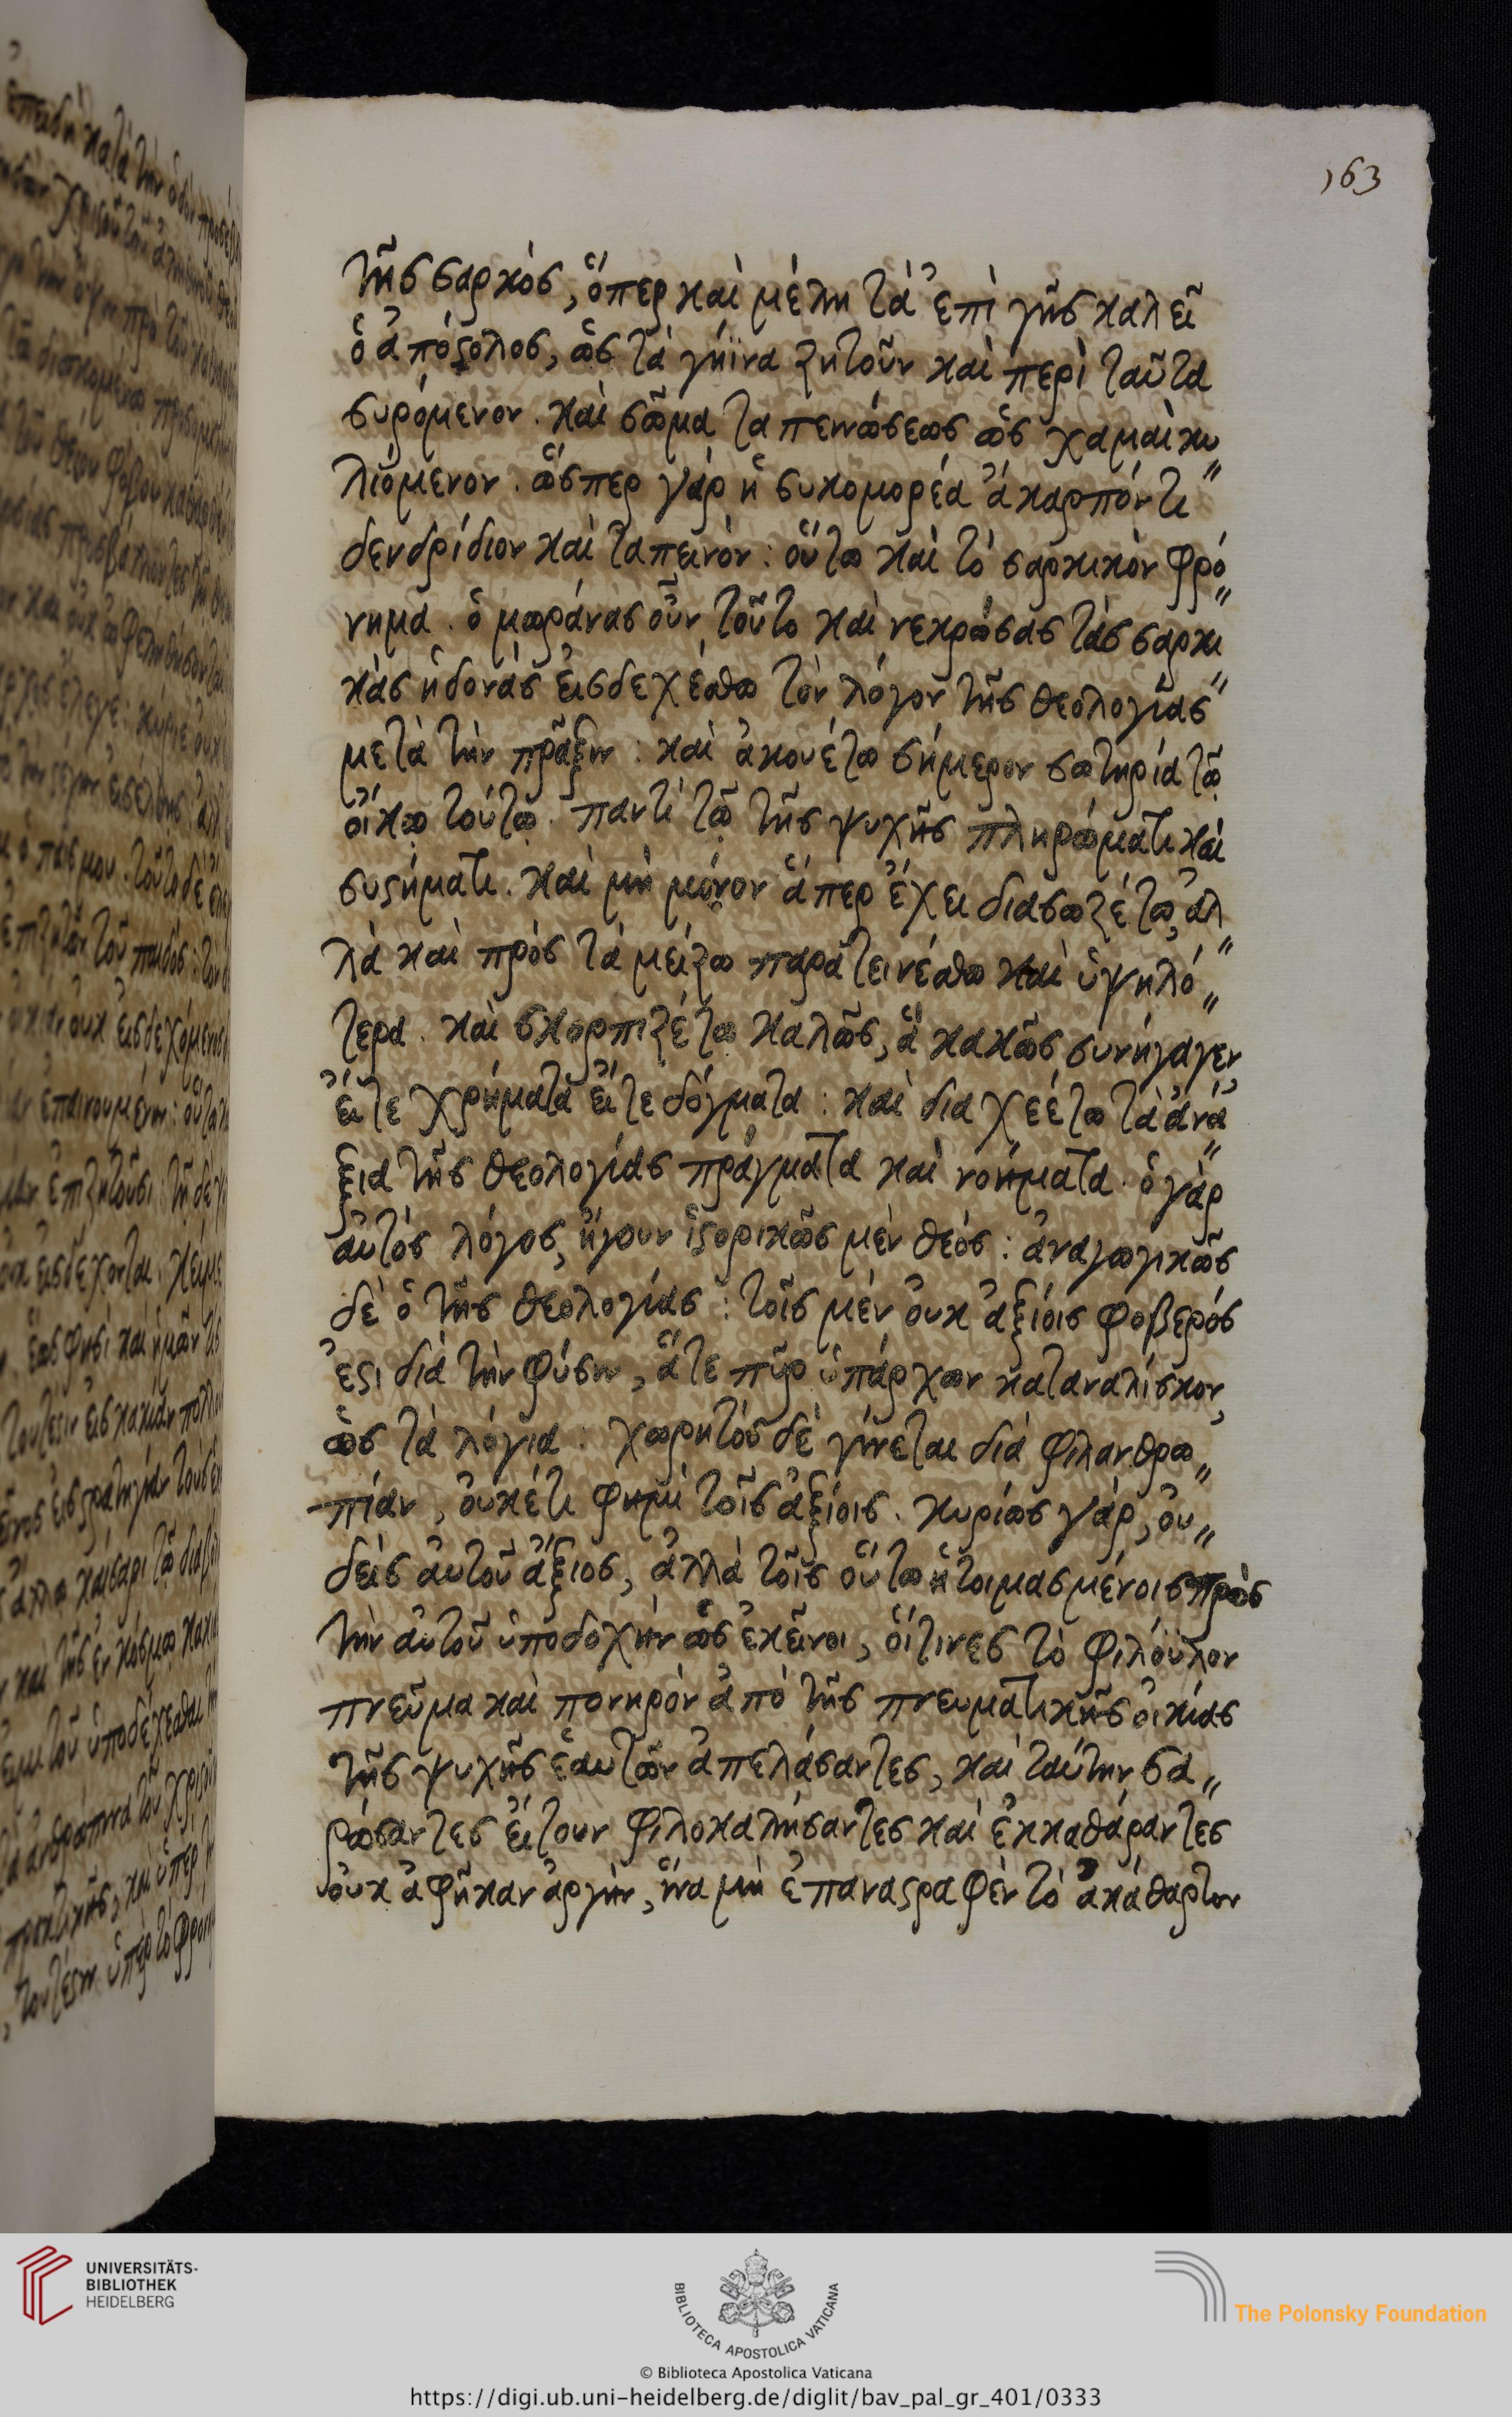 163
τῆς σαρκὸς, ὅπερ καὶ μέλη τὰ ἐπὶ γῆς καλεῖ
ὁ ἀπόστολος, ὡς τὰ γήϊνα ζητοῦν καὶ περὶ ταῦτα
συρόμενον. καὶ σῶμα ταπεινώσεως ὡς χαμαὶ κυ„
λιόμενον. ὥσπερ γάρ ἡ συκομορέα ἄκαρπόν τι
δενδρίδιον καὶ ταπεινὸν: οὕτω καὶ τὸ σαρκικὸν φρό„
νημα. ὁ μωράνας οὖν τοῦτο καὶ νεκρώσας τὰς σαρκι„
κὰς ἡδονὰς εἰσδεχέσθω τὸν λόγον τῆς θεολογίας
μετὰ τὴν πρᾶξιν: καὶ ἀκουέτω σήμερον σωτηρία τῷ
οἴκῳ τούτῳ. παντὶ τῷ τῆς ψυχῆς πληρώματι καὶ
συστήματι. καὶ μὴ μόνον ἅπερ ἔχει διασωζέτω, ἀλ„
λὰ καὶ πρὸς τὰ μείζω παρατεινέσθω καὶ ὑψηλό„
τερα. καὶ σκορπιζέτω καλῶς, ἃ κακῶς συνήγαγεν
εἴτε χρήματα εἴτε δόγματα: καὶ διαχεέτω τὰ ἀνά„
ξια τῆς θεολογίας πράγματα καὶ νοήματα. ὁ γὰρ
αὐτὸς λόγος, ἤγουν ἱστορικῶς μὲν θεός: ἀναγωγικῶς
δὲ ὁ τῆς θεολογίας: τοῖς μὲν οὐκ ἀξίοις φοβερός
ἐστι διὰ τὴν φύσιν, ἅτε πῦρ ὑπάρχων καταναλίσκον,
ὡς τὰ λόγια: χωρητὸς δὲ γίνεται διὰ φιλανθρω„
πίαν, οὐκέτι φημὶ τοῖς ἀξίοις. κυρίως γάρ, οὐ„
δεὶς αὐτοῦ ἄξιος, ἀλλὰ τοῖς οὕτω ἡτοιμασμένοις πρὸς
τὴν αὐτοῦ ὑποδοχὴν ὡς ἐκεῖνοι, οἵτινες τὸ φιλόϋλον
πνεῦμα καὶ πονηρὸν ἀπὸ τῆς πνευματικῆς οἰκίας
τῆς ψυχῆς ἑαυτῶν ἀπελάσαντες, καὶ ταύτην σα„
ρώσαντες εἴτουν φιλοκαλήσαντες καὶ ἐκκαθάραντες
οὐκ ἀφῆκαν ἀργὴν, ἵνα μὴ ἐπαναστραφὲν τὸ ἀκάθαρτον
UNIVERSITÄTS-
BIBLIOTHEK
HEIDELBERG
BIBLIOTECA APOSTOLICA VATICANA
© Biblioteca Apostolica Vaticana
The Polonsky Foundation
https://digi.ub.uni-heidelberg.de/diglit/bav_pal_gr_401/0333